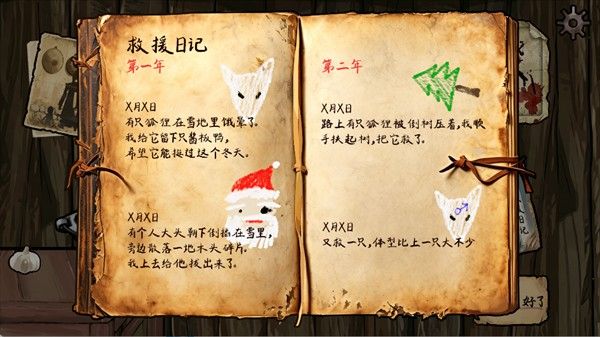 救援日记
第一年
X月X日
有只狐狸在雪地里饿晕了。
我给它留下只酱板鸭，
希望它能挨过这个冬天。
X月X日
有个人大头朝下倒插在雪里，
旁边散落一地木头碎片。
我上去给他拔出来了。
第二年
X月X日
路上有只狐狸被倒树压着，我歇
手扶起树，把它救了。
X月X日
又救一只，体型比上一只大不少
记
好了